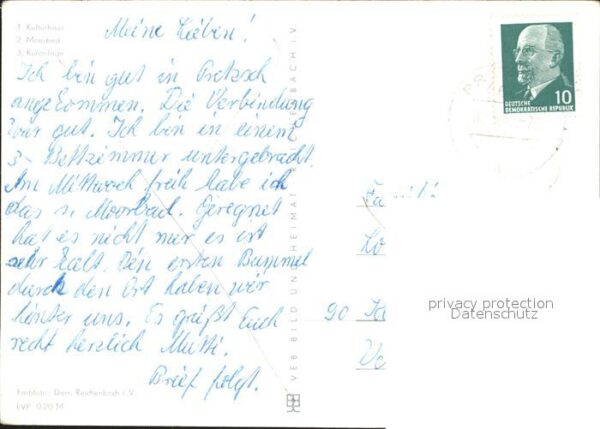 1. Kulturhaus
2. Moorbad
3. Kuranlage
Meine Lieben!
Ich bin gut in Pretzsch
angekommen. Die Verbindung
war gut. Ich bin in einem
3-Bettzimmer untergebracht.
Am Mittwoch früh habe ich
das 1. Moorbad. Geregnet
hat es nicht nur es ist
sehr kalt. Den ersten Bummel
durch den Ort haben wir
hinter uns. Es grüßt Euch
recht herzlich Mutti.
Brief folgt.
Fotos: Darr, Reichenbach i. V.
EVP 0,20 M
VEB BILD UND HEIMAT REICHENBACH i. V.
10
DEUTSCHE
DEMOKRATISCHE REPUBLIK
Famili
90
privacy protection
Datenschutz